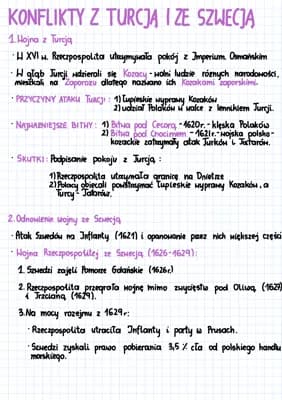 KONFLIKTY Z TURCJĄ I ZE SZWECJĄ
1. Wojna z Turcją
· W XVI w. Rzeczpospolita utrzymywała pokój z Imperium Osmańskim
· W głąb Turcji wdzierali się Kozacy - wolni ludzie różnych narodowości,
mieszkali na Zaporożu dlatego nazwano ich Kozakami zaporskimi.
· PRZYCZYNY ATAKU TURCJI: 1) Łupieskie wyprawy Kozaków
2) udział Polaków w walce z lennikiem Turcji.
· NAJWAŻNIEJSZE BITWY: 1) Bitwa pod Cecorą - 1620r. - klęska Polaków
2) Bitwa pod Chocimiem - 1621r. - wojska polsko-
kozackie zatrzymały atak Turków i Tatarów.
· SKUTKI: Podpisanie pokoju z Turcją:
1) Rzeczpospolita utrzymała granicę na Dniestrze
2) Polacy obiecali powstrzymać łupieskie wyprawy Kozaków, a
Turcy - Tatarów.
2. Odnowienie wojny ze Szwecją
· Atak Szwedów na Inflanty (1621) i opanowanie przez nich większej części
· Wojna Rzeczpospolitej ze Szwecją (1626-1629):
1. Szwedzi zajęli Pomorze Gdańskie (1626r.)
2. Rzeczpospolita przegrała wojnę mimo zwycięstw pod Oliwą, (1627)
i Trzcianą, (1629).
3. Na mocy rozejmu z 1629r:
· Rzeczpospolita utraciła Inflanty i porty w Prusach.
· Szwedzi zyskali prawo pobierania 3,5 % cła od polskiego handlu
morskiego.